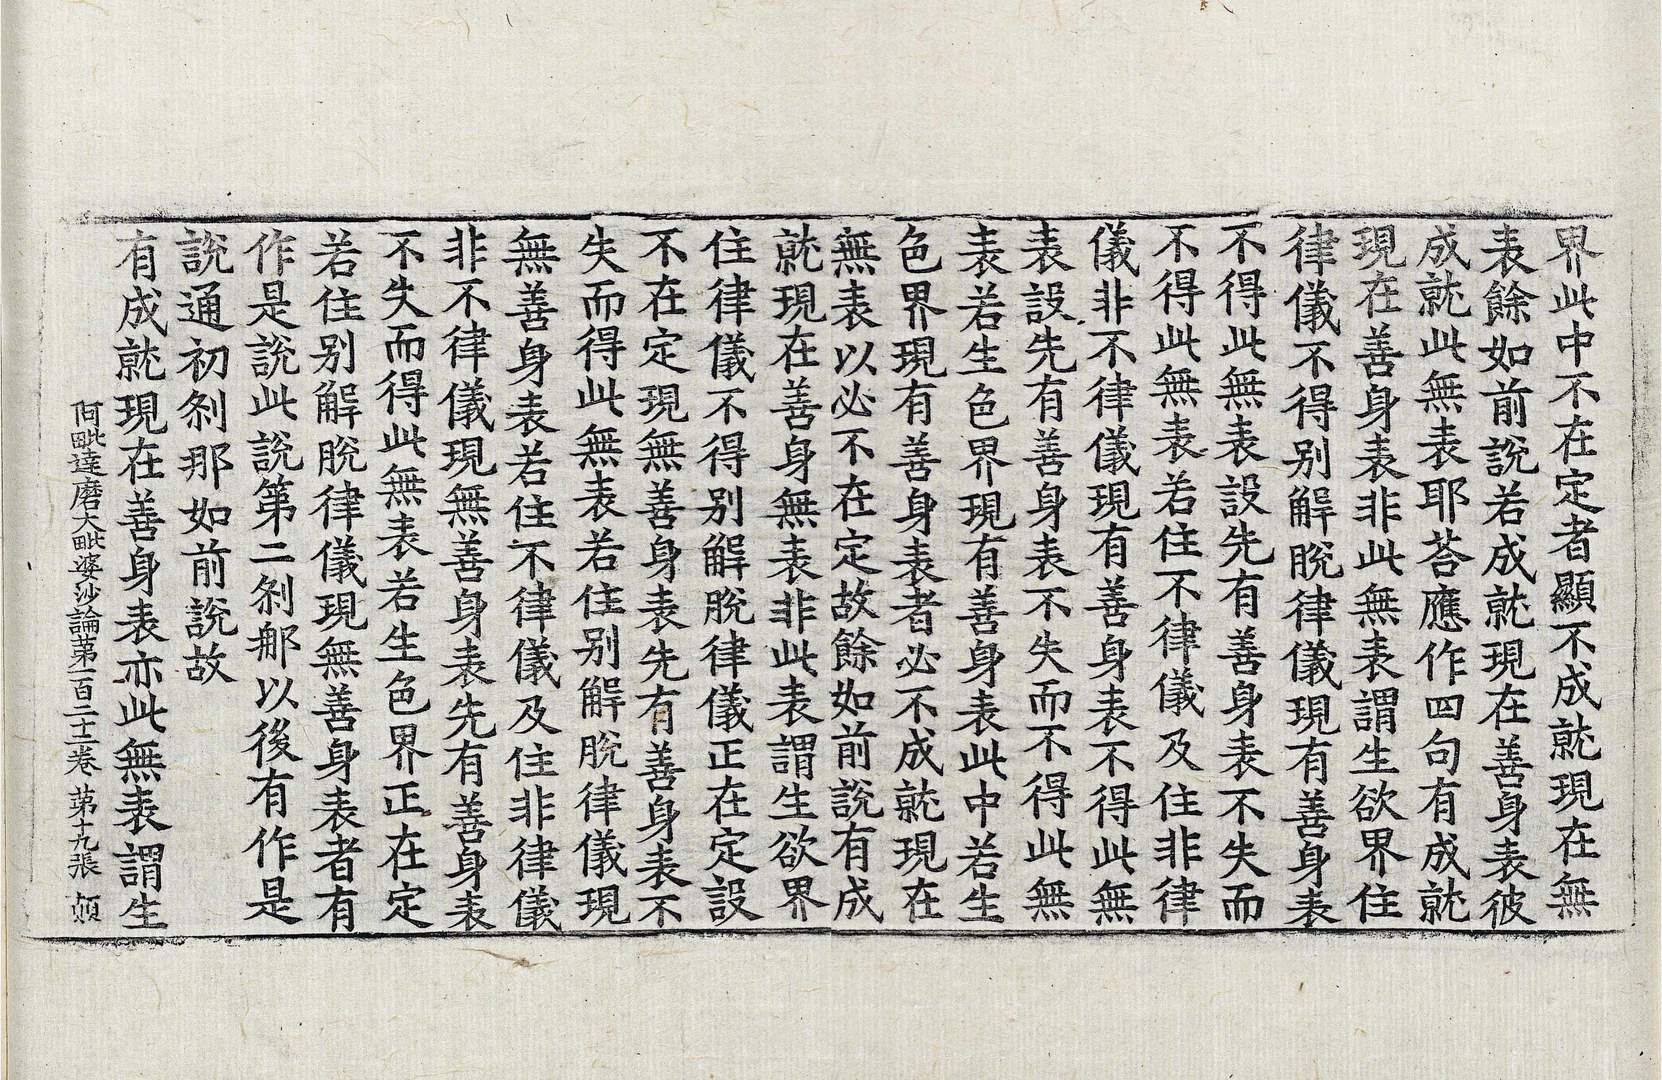 界此中不在定者顯不成就現在無
表餘如前說若成就現在善身表彼
成就此無表耶荅應作四句有成就
現在善身表非此無表謂生欲界住
律儀不得別解脫律儀現有善身表
不得此無表設先有善身表不失而
不得此無表若住不律儀及住非律
儀非不律儀現有善身表不得此無
表設先有善身表不失而不得此無
表若生色界現有善身表此中若生
色界現有善身表者必不成就現在
無表以必不在定故餘如前說有成
就現在善身無表非此表謂生欲界
住律儀不得別解脫律儀正在定設
不在定現無善身表先有善身表不
失而得此無表若住別解脫律儀現
無善身表若住不律儀及住非律儀
非不律儀現無善身表先有善身表
不失而得此無表若生色界正在定
若住別解脫律儀現無善身表者有
作是說此說第二剎那以後有作是
說通初剎那如前說故
有成就現在善身表亦此無表謂生
阿毗達磨大毗婆沙論第一百二十二卷 第十九張 頔